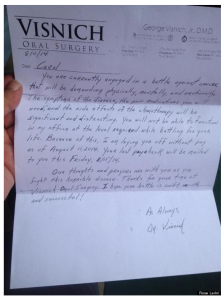 VISNICH
ORAL SURGERY
George Visnich Jr. D.M.D.
Dear Carol
You are currently engaged in a battle against cancer
that will be demanding physically, mentally, and emotionally.
The symptoms of the disease, the pain medications you will
need, and the side effects of the chemotherapy will be
significant and distracting. You will not be able to function
in my office at the level required while battling for your
life. Because of this, I am laying you off without pay
as of August 11. Your last paycheck will be mailed
to you this Friday,
Our thoughts and prayers are with you as you
fight this horrible disease. Thanks for your time at
Visnich Oral Surgery. I hope your battle is
and successful!
As Always
Dr Visnich